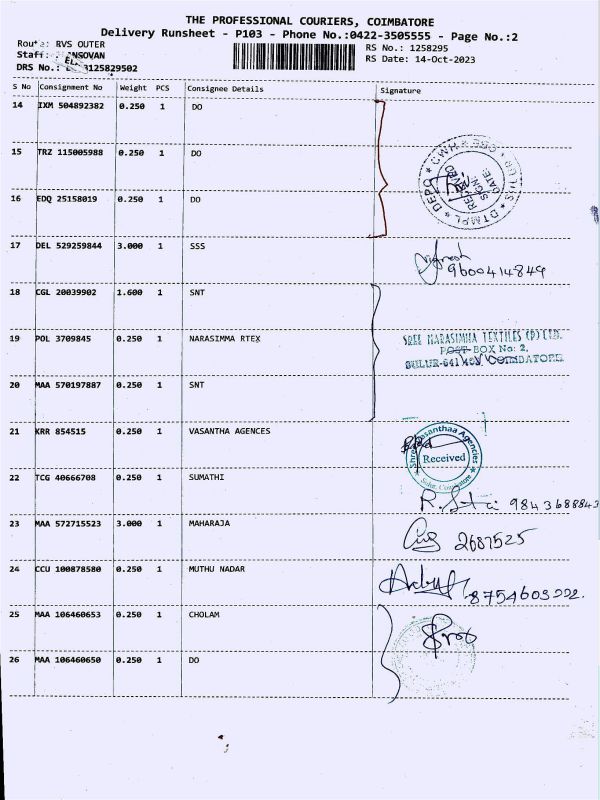 THE PROFESSIONAL COURIERS, COIMBATORE
Delivery Runsheet - P103 - Phone No.:0422-3505555 - Page No.:2
Route: RVS OUTER
RS No.: 1258295
Staff: ANSOVAN
RS Date: 14-Oct-2023
DRS No.: 3125829502
S No Consignment No Weight PCS Consignee Details Signature
14 IXM 504892382 0.250 1 DO
15 TRZ 115005988 0.250 1 DO
16 EDQ 25158019 0.250 1 DO
17 DEL 529259844 3.000 1 SSS
9600414849
18 CGL 20039902 1.600 1 SNT
19 POL 3709845 0.250 1 NARASIMMA RTEX
SREE NARASIMHA TEXTILES (P) LTD.
POST BOX No: 2,
SULUR-641 402, COIMBATORE
20 MAA 570197887 0.250 1 SNT
21 KRR 854515 0.250 1 VASANTHA AGENCES
Shree Vasanthaa Agencies
Received
22 TCG 40666708 0.250 1 SUMATHI
9843688843
23 MAA 572715523 3.000 1 MAHARAJA
2687525
24 CCU 100878580 0.250 1 MUTHU NADAR
8754603222.
25 MAA 106460653 0.250 1 CHOLAM
26 MAA 106460650 0.250 1 DO